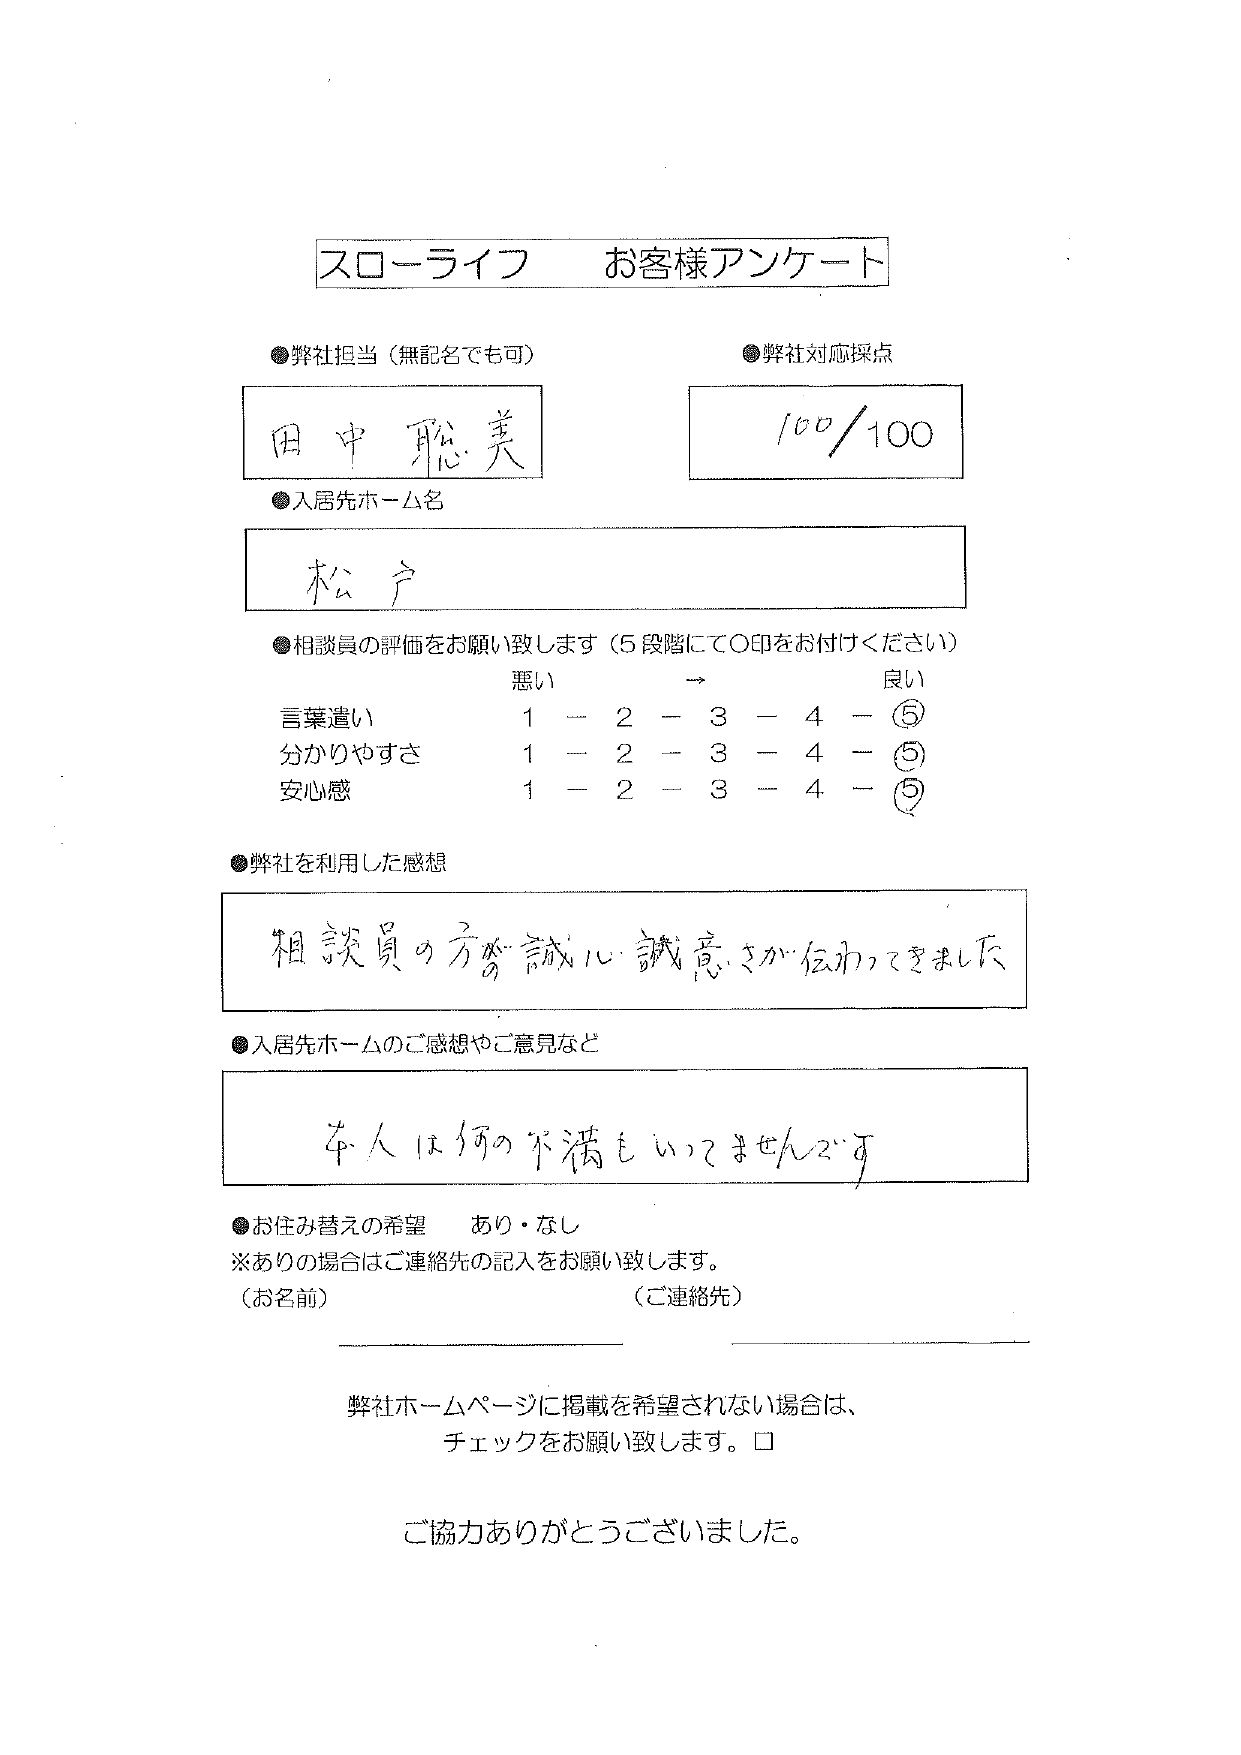 スローライフ　　お客様アンケート
●弊社担当（無記名でも可）　●弊社対応採点
田中 聡美　100/100
●入居先ホーム名
松戸
●相談員の評価をお願い致します（5段階にて〇印をお付けください）
悪い　→　良い
言葉遣い　1 － 2 － 3 － 4 － 5
分かりやすさ　1 － 2 － 3 － 4 － 5
安心感　1 － 2 － 3 － 4 － 5
●弊社を利用した感想
相談員の方の誠心誠意さが伝わってきました
●入居先ホームのご感想やご意見など
本人は何の不満もいってませんです
●お住み替えの希望　あり・なし
※ありの場合はご連絡先の記入をお願い致します。
（お名前）　（ご連絡先）
弊社ホームページに掲載を希望されない場合は、
チェックをお願い致します。□
ご協力ありがとうございました。